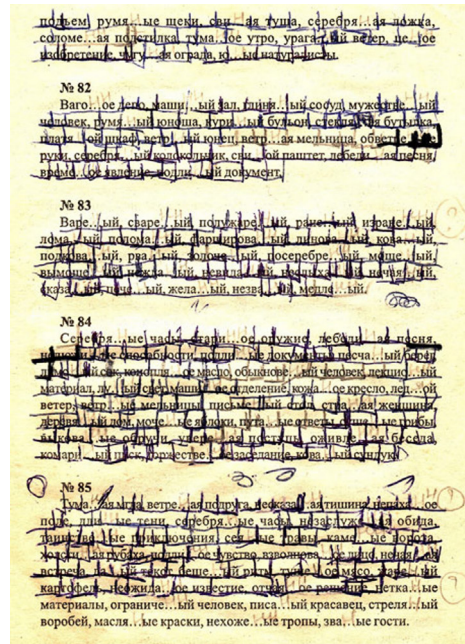 подъем, румя…ые щеки, сви…ая туша, серебря…ая ложка,
соломе…ая подстилка, тума…ое утро, урага…ый ветер, це…ое
изобретение, чугу…ая ограда, ю…ые натуралисты.
№ 82
Ваго…ое депо, маши…ый зал, глиня…ый сосуд, мужестве…ый
человек, румя…ый юноша, кури…ый бульон, стекля…ая бутылка,
платя…ой шкаф, ветр…ый юнец, ветр…ая мельница, обветре…
руки, серебря…ый колокольчик, сви…ой паштет, лебеди…ая песня,
време…ое явление, подли…ый документ.
№ 83
Варе…ый, сваре…ый, полужаре…ый, ране…ый, изране…ый,
лома…ый, полома…ый, фарширова…ый, линова…ый, кова…ый,
подкова…ый, рва…ый, золоче…ый, посеребре…ый, моще…ый,
вымоще…ый, нежда…ый, невида…ый, неслыха…ый, нечая…ый,
сказа…ый, пече…ый, жела…ый, незва…ый, медле…ый.
№ 84
Серебря…ые часы, стари…ое оружие, лебеди…ая песня,
способности, подли…ые документы, песча…ый берег,
сок, конопля…ое масло, обыкнове…ый человек, лекцио…ый
материал, лу…ый свет, маши…ое отделение, кожа…ое кресло, лед…ой
ветер, ветр…ые мельницы, письме…ый стол, стра…ая женщина,
деревя…ый дом, моче…ые яблоки, пута…ые ответы, суше…ые грибы,
обручи, оживле…ая беседа,
комари…ый писк, торжестве…ое заседание, кова…ый сундук.
№ 85
Тума…ая мгла, ветре…ая подруга, несказа…ая тишина, непаха…ое
поле, дли…ые тени, серебря…ые часы, незаслуже…ая обида,
таинстве…ые приключения, сея…ые травы, каме…ые ворота,
холсти…ая рубаха, подли…ое чувство, взволнова…ое лицо, неждa…ая
встреча, да…ый текст, беше…ый ритм, туше…ое мясо, жаре…ый
картофель, неожида…ое известие, отчая…ое решение, нетка…ые
материалы, ограниче…ый человек, писа…ый красавец, стреля…ый
воробей, масля…ые краски, нехоже…ые тропы, зва…ые гости.